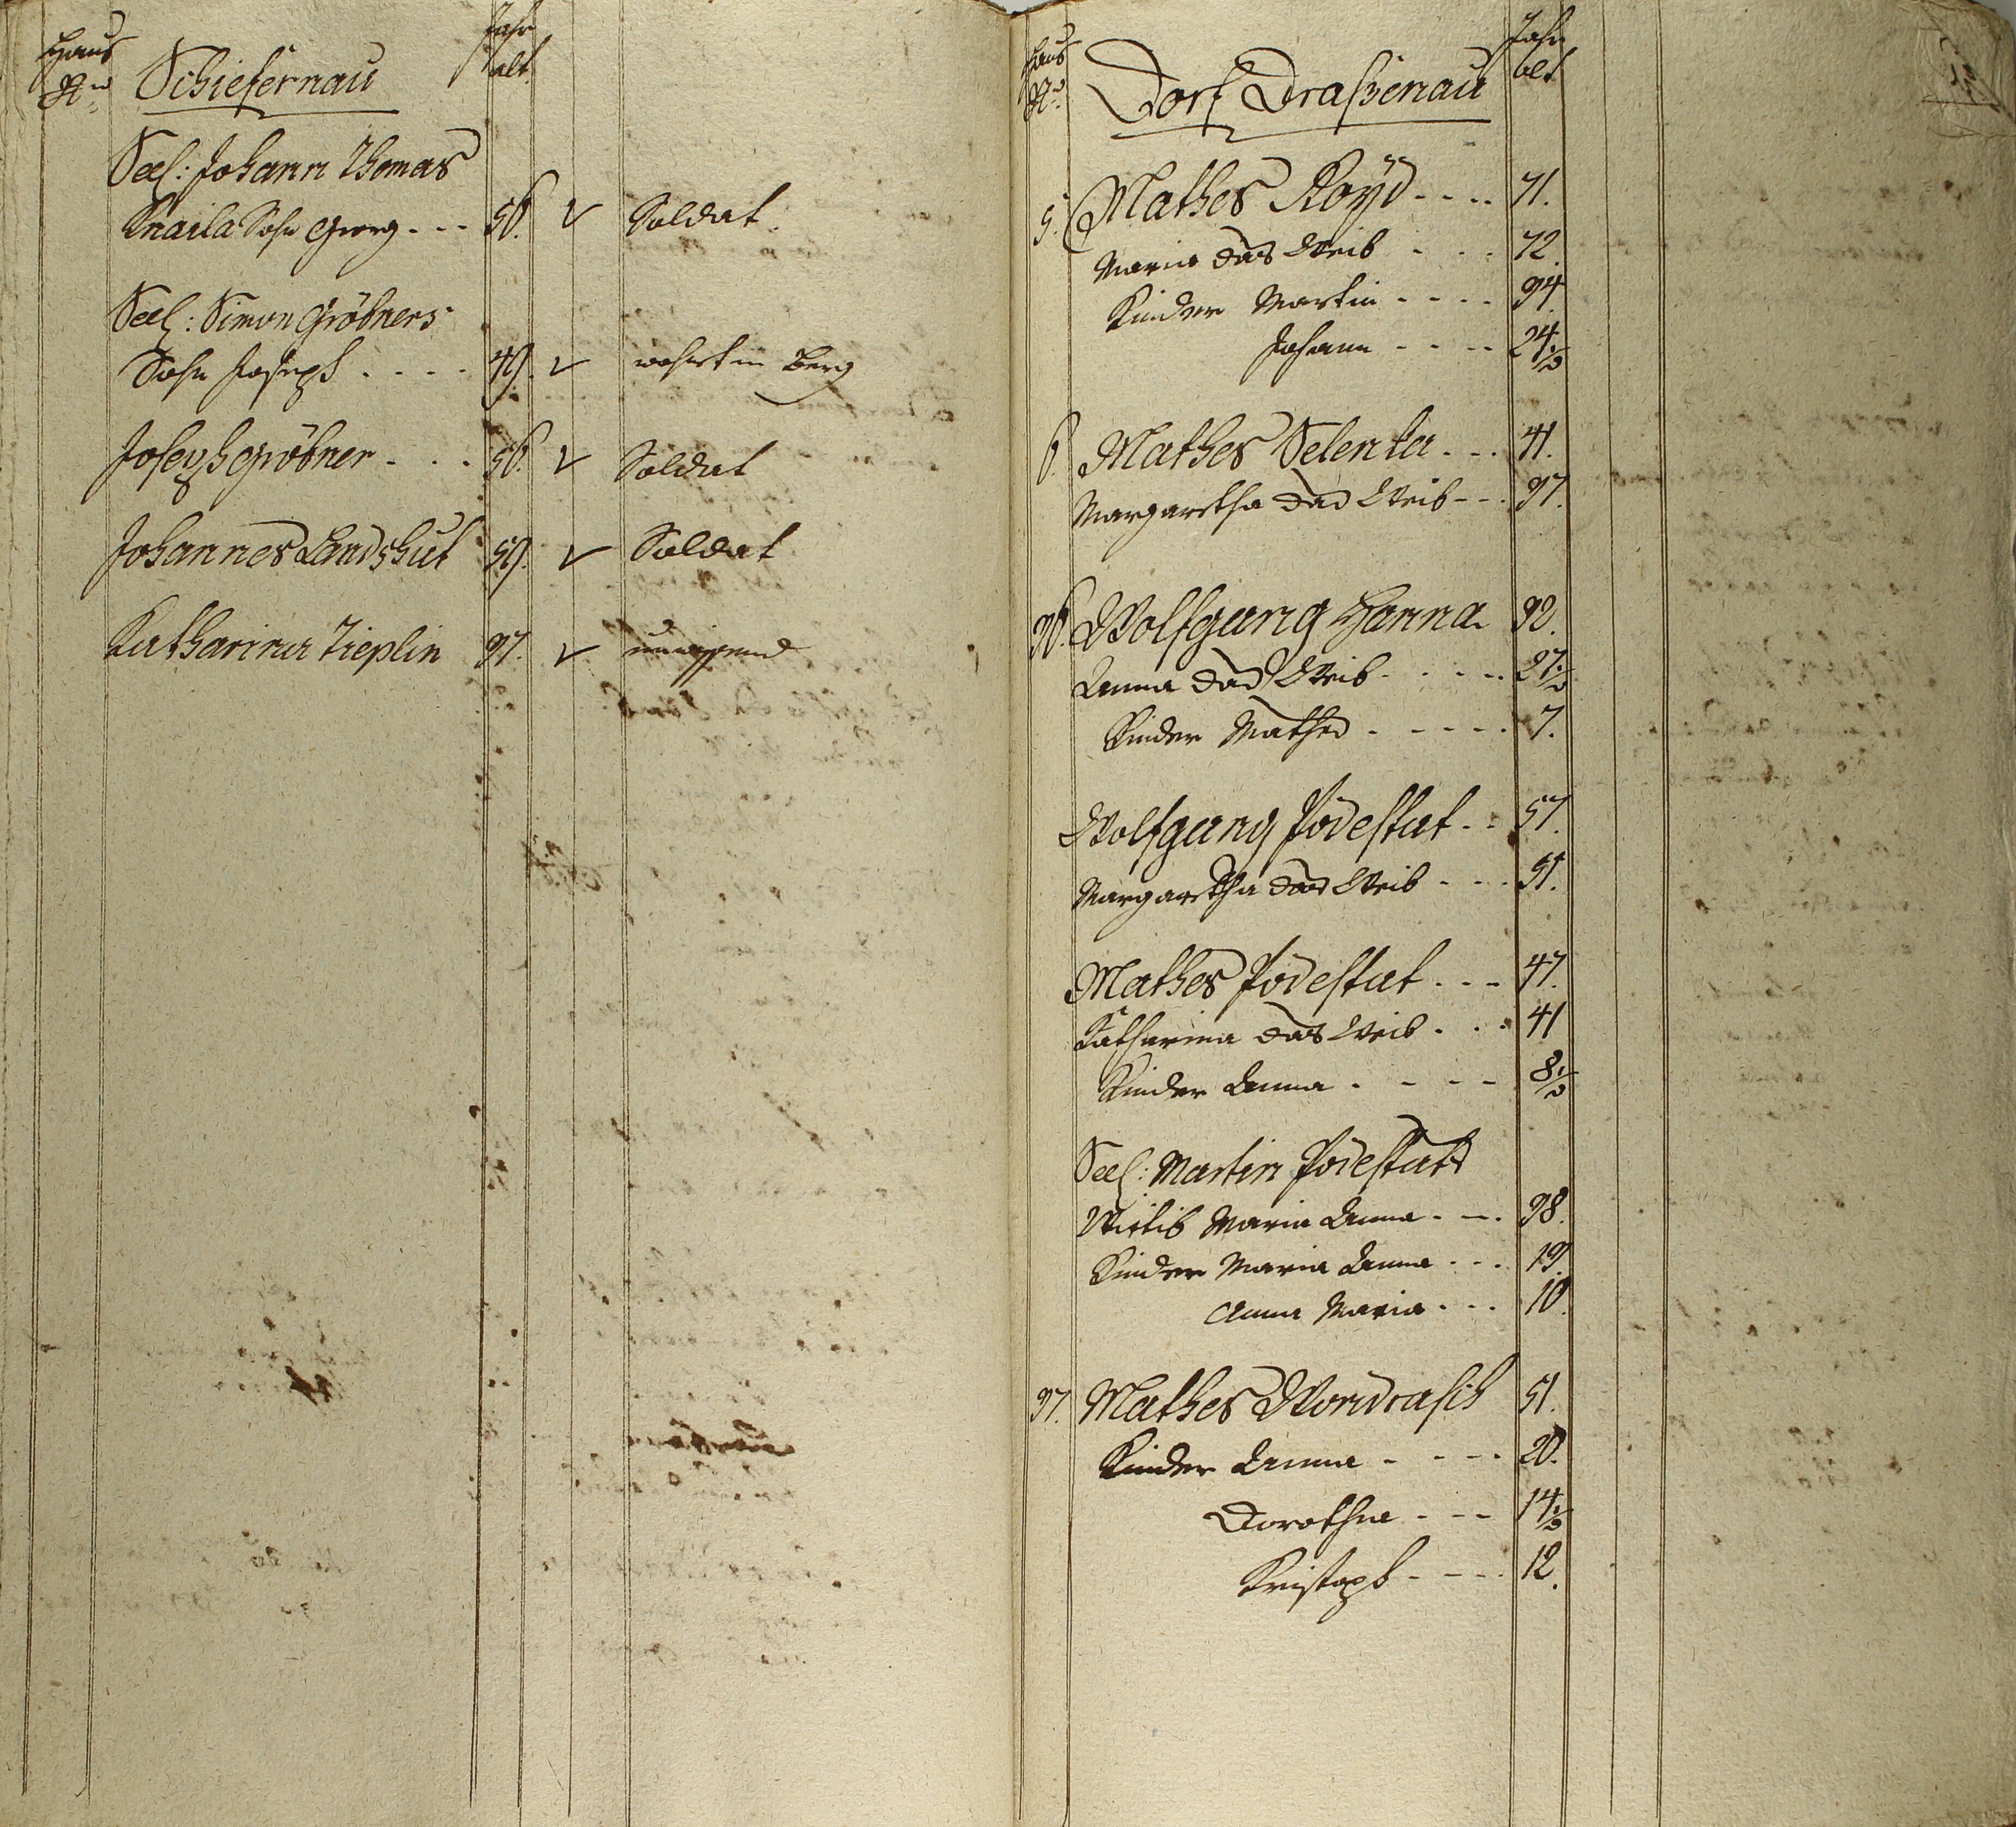 Haus
Nro
Schiefernau
Jahr
alt
Seel: Johann Thomas
Knaila Sohn Georg - - - 56. Soldat.
Seel: Simon Gröbners
Sohn Joseph . . . . 49. wohnt in Berg
Joseph Gröbner - . . 56. Soldat
Johannes Landshut 59. Soldat
Katharina Zieplin 37. unwissend
Haus
Nro
Dorf Draßenau
Jahr
alt
5. Mathes Koÿd - - - . 71.
Maria das Weib - . . . 72.
Kinder Martin - - - - 34.
Johann - - - - 24 1/2
6. Mathes Selenka . - . 41.
Margaretha das Weib - - . 37.
36. Wolfgang Hanna 32.
Anna das Weib . . . - . 27 1/2
Kinder Mathes . - - - . 7.
Wolfgang Podestat . - 57.
Margaretha das Weib - - - 51.
Mathes Podestat . - - 47.
Katharina das Weib . . . 41
Kinder Anna . - - - 8 1/2
Seel: Martin Podestats
Wittib Maria Anna . - . 38.
Kinder Maria Anna . . . 19.
Anna Maria . - . 10.
37. Mathes Wondrasch 51.
Kinder Anna - . - . 20.
Dorothea - - - 14 1/2
Kristoph - - - . 12.